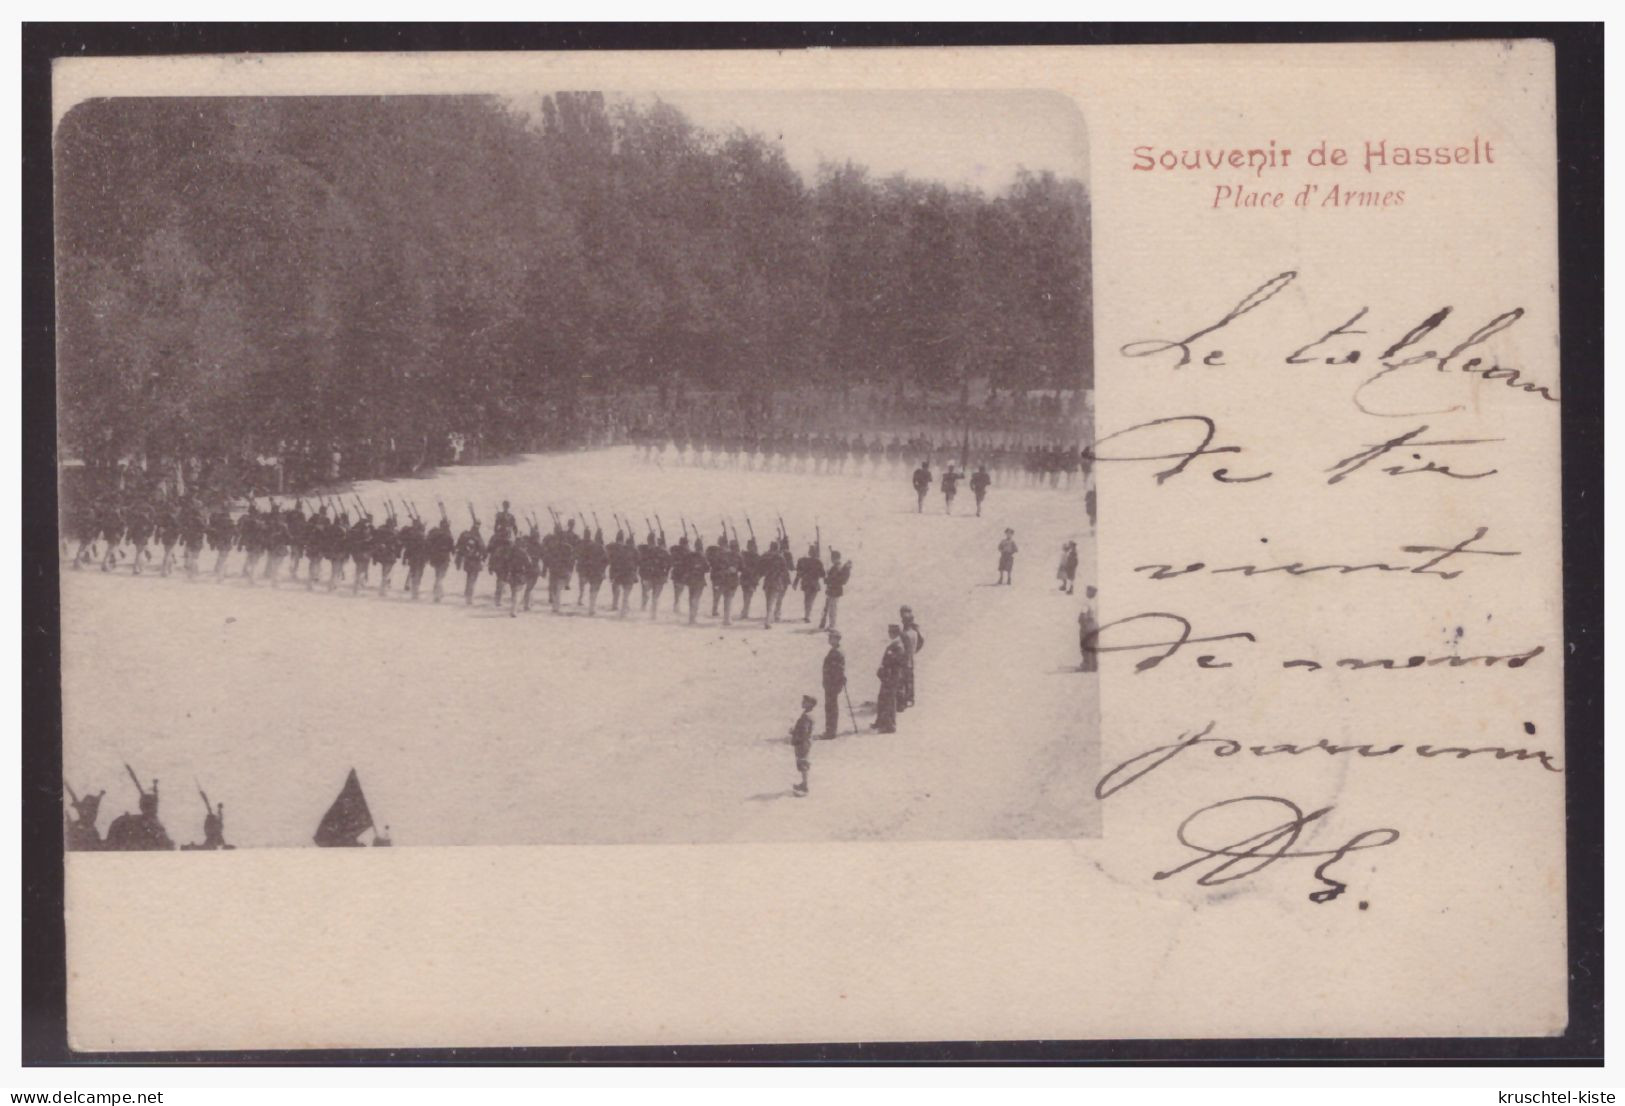 Souvenir de Hasselt
Place d'Armes
Le tableau
de tir
vient
de nous
parvenir
delcampe.net
kruschtel-kiste